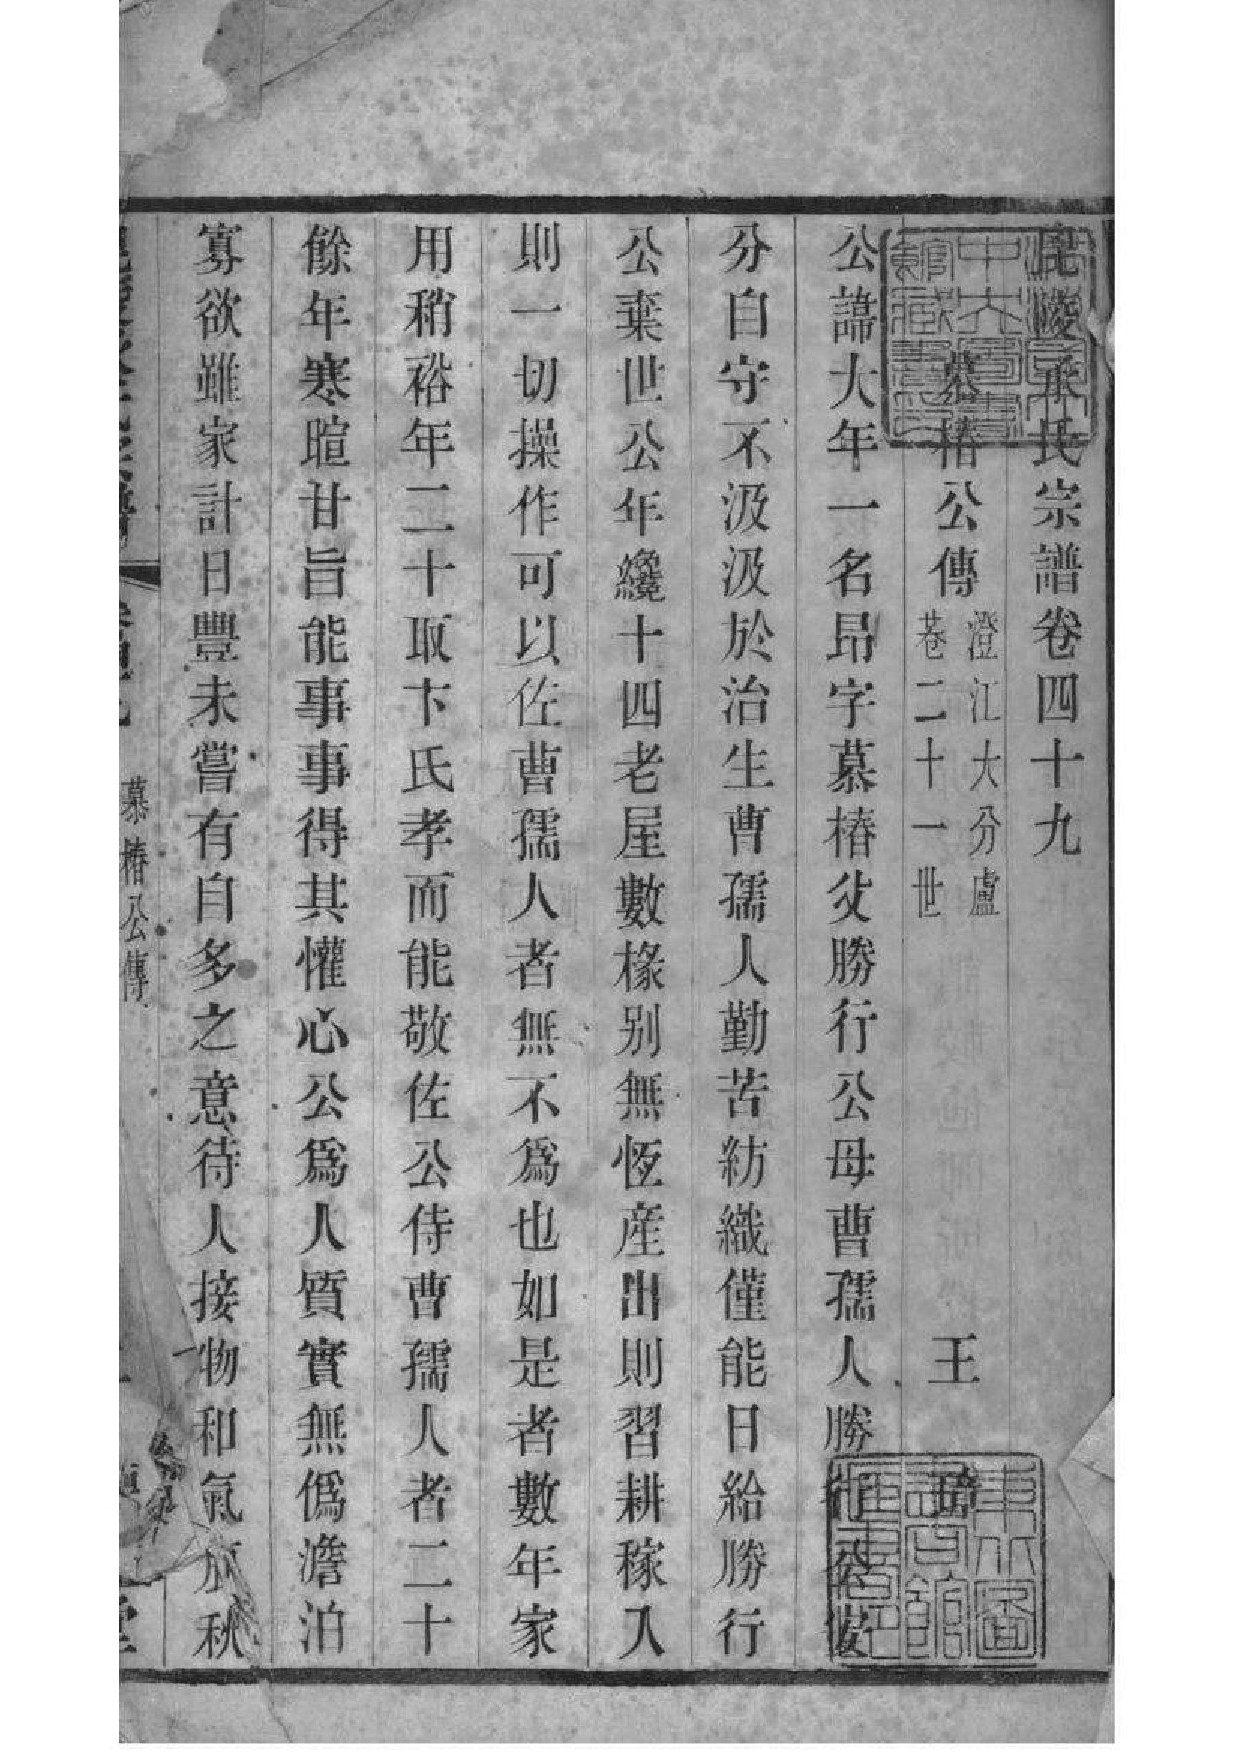 毘陵承氏宗譜卷四十九
慕椿公傳 澄江大分盧 王
巷二十一世
公諱大年一名昂字慕椿父勝行公母曹孺人勝行公安
分自守不汲汲於治生曹孺人勤苦紡織僅能日給勝行
公棄世公年纔十四老屋數椽別無恆產出則習耕稼入
則一切操作可以佐曹孺人者無不為也如是者數年家
用稍裕年二十取卞氏孝而能敬佐公侍曹孺人者二十
餘年寒暄甘旨能事事得其懽心公爲人質實無僞澹泊
寡欲雖家計日豐未嘗有自多之意待人接物和氣
慕椿公傳